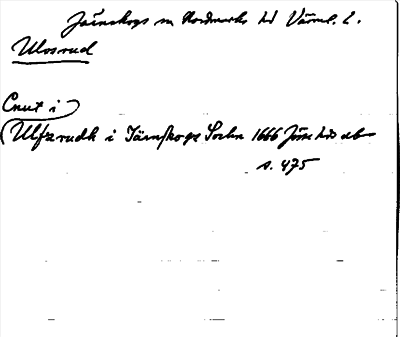 Järnskogs sn Nordmarks hd Värml. l.
Ulvsrud
Cnut i
Ulfzrudh i Järnskogs Sochn 1666 Jösse hds db
s. 475